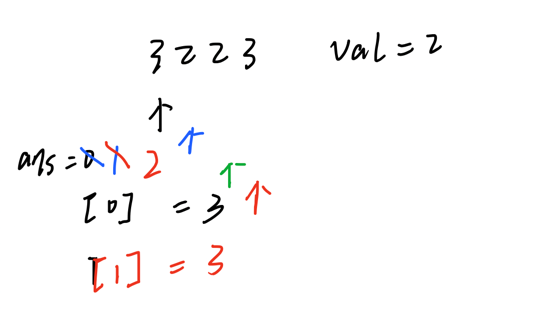 3 2 2 3 val = 2
↑
ans = 0 1 2 ↑
[0] = 3 ↑ ↑
[1] = 3